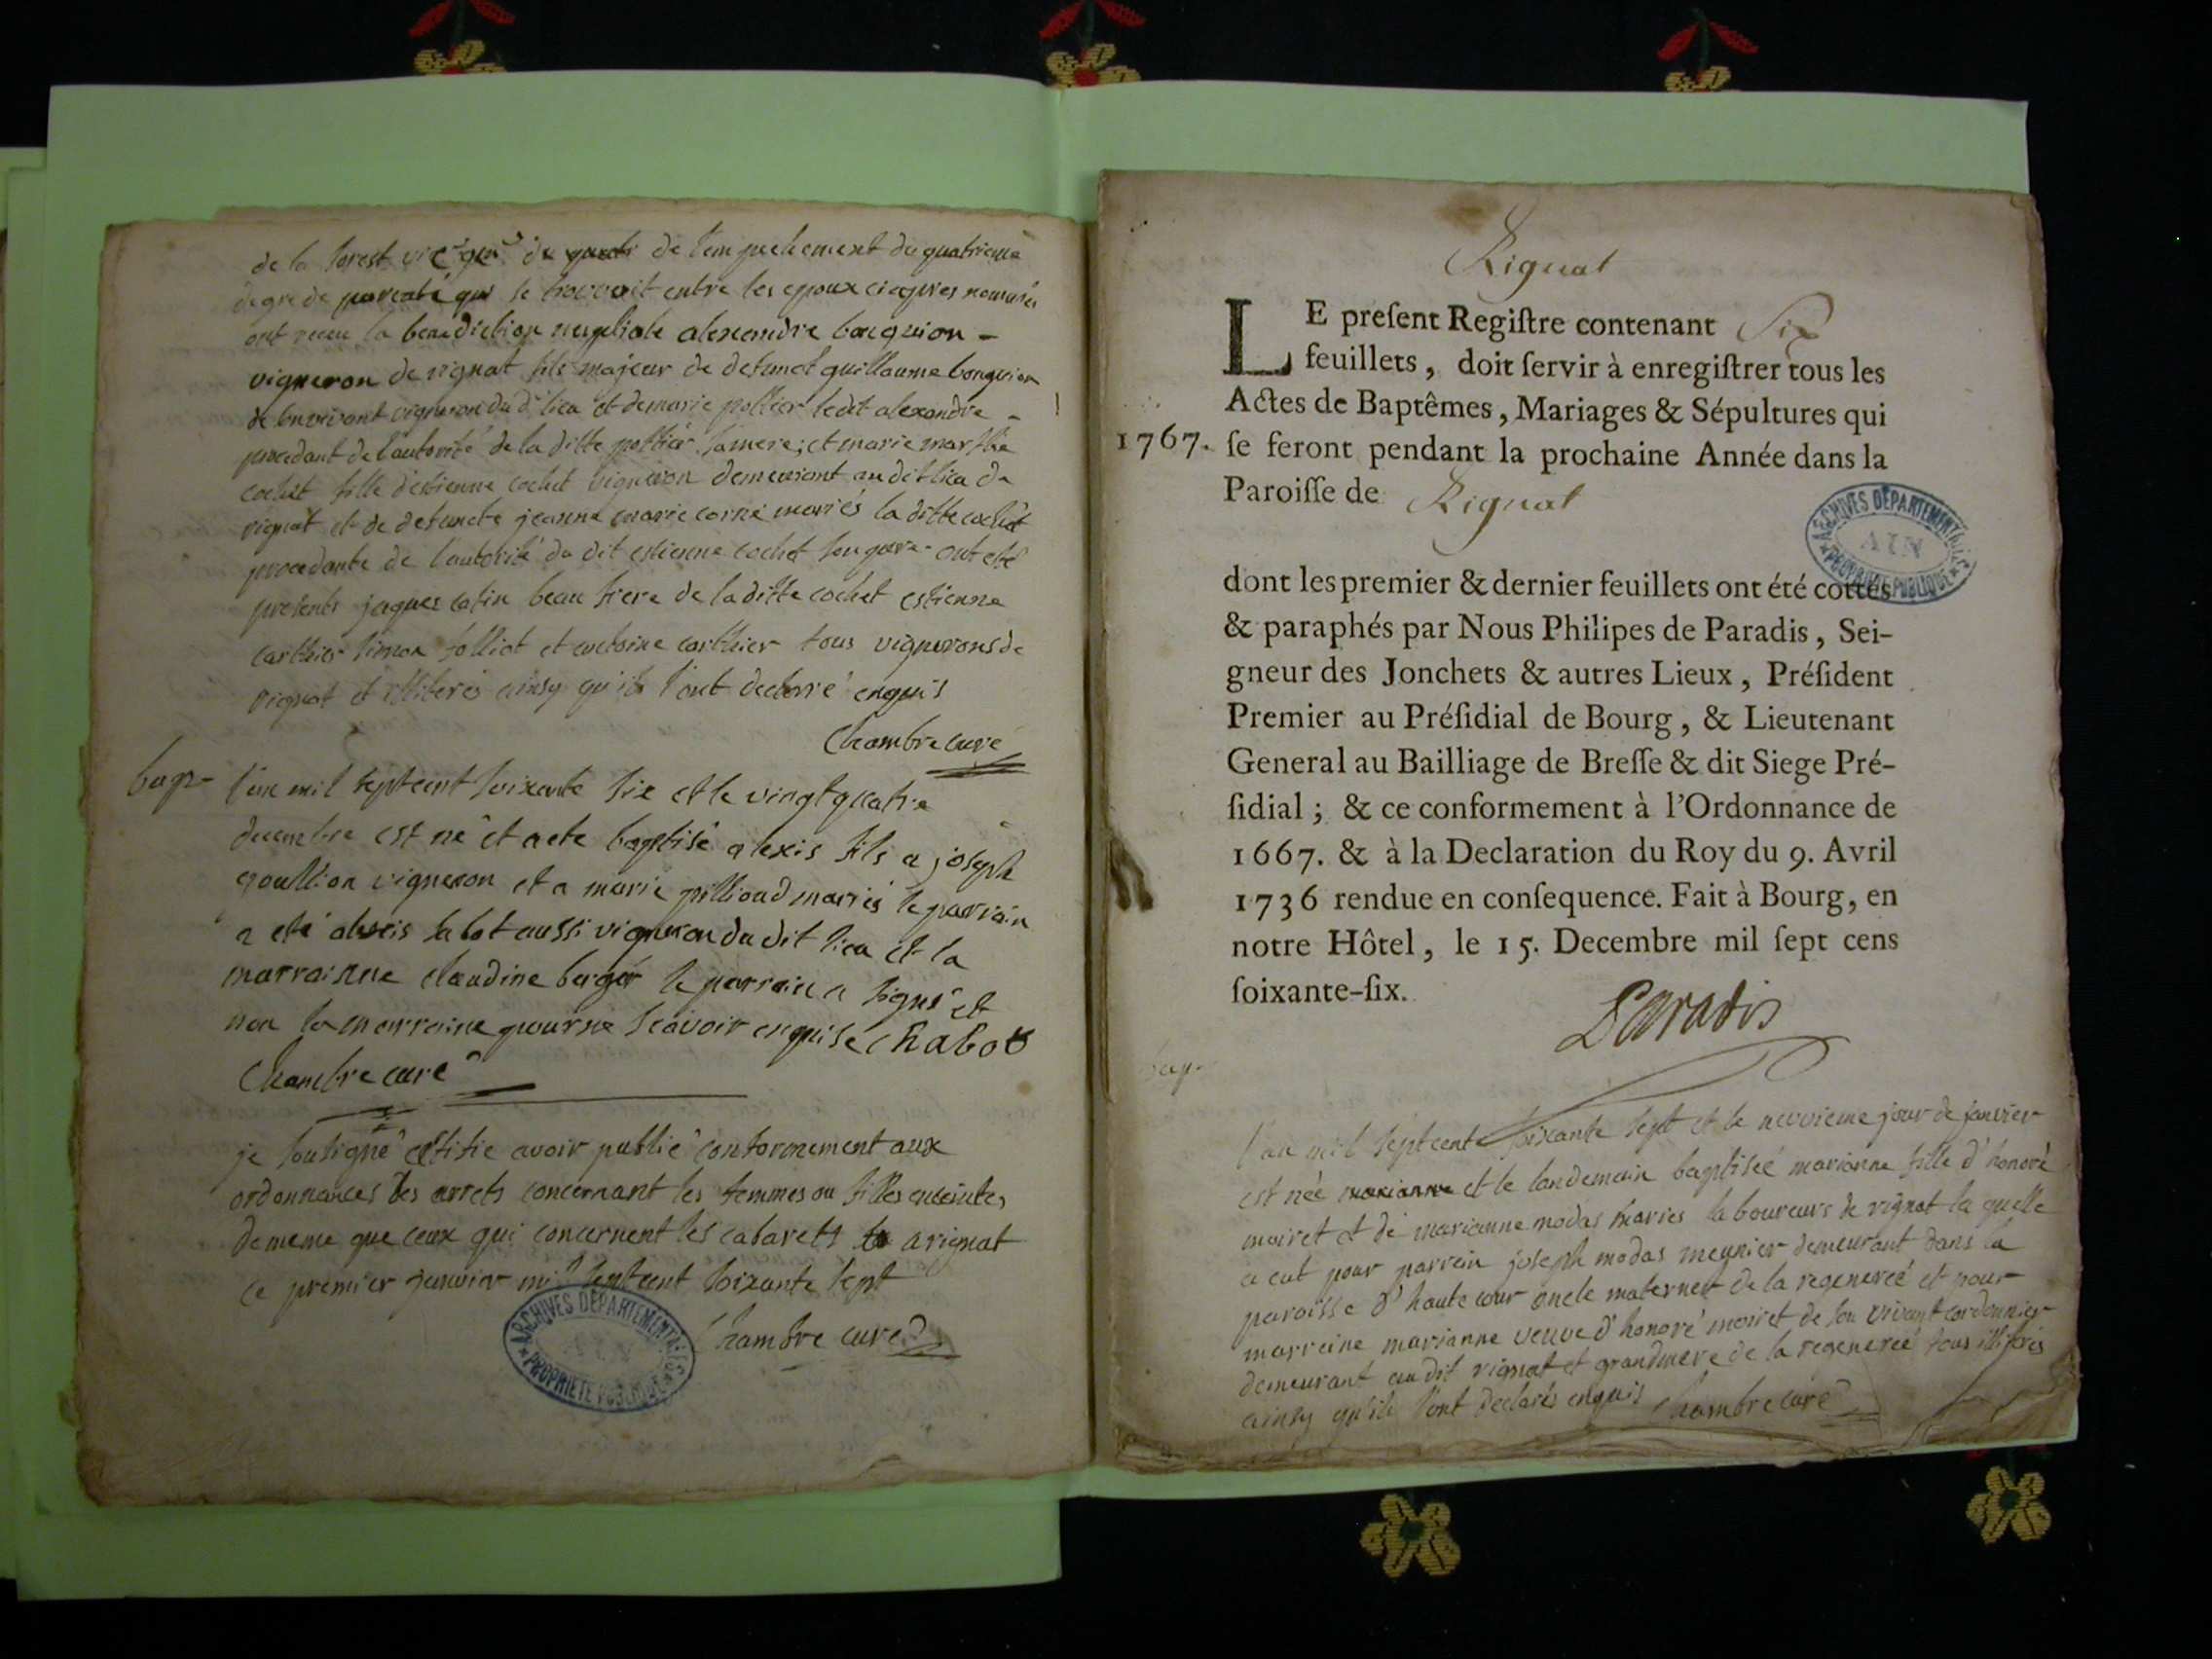 de la forest vic. gen. de de l'empechement du quatrieme
degre de parenté qui se trouvoit entre les epoux ci apres nommés
ont receu la benediction nuptiale alexandre bouquion
vigneron de rignat fils majeur de defunct guillaume bouquion
de son vivant vigneron du d. lieu et de marie pothier ledit alexandre
procedant de l'autorité de la ditte pothier sa mere; et marie marthe
cochet fille d'estienne cochet vigneron demeurant au dit lieu de
rignat et de defuncte jeanne marie mariés la ditte cochet
procedante de l'autorité du dit estienne cochet son pere ont eté
presents jaques catin beau frere de la ditte cochet estienne
carthier simon folliet et antoine carthier tous vignerons de
rignat et illiteres ainsy qu'ils l'ont declarré enquis
Chambre curé
bap-
l'an mil sept cent soixante six et le vingt quatre
decembre est né et a ete baptisé alexis fils a joseph
goullion vigneron et a marie pillioud mariés le parrain
a eté alexis sabot aussi vigneron du dit lieu et la
marraine claudine berger le parrain a signé et
non la marraine pour ne scavoir enquise Chabot
Chambre curé
je sousigné certifie avoir publié conformement aux
ordonnances les arrets concernant les femmes ou filles enceintes
de meme que ceux qui concernent les cabarets a rignat
ce premier janvier mil sept cent soixante sept
Chambre curé
ARCHIVES DÉPARTEMENTALES
AIN
PROPRIÉTÉ PUBLIQUE
Rignat
LE preſent Regiſtre contenant Six
feuillets, doit ſervir à enregiſtrer tous les
Actes de Baptêmes, Mariages & Sépultures qui
1767. ſe feront pendant la prochaine Année dans la
Paroiſſe de Rignat
ARCHIVES DÉPARTEMENTALES
AIN
PROPRIÉTÉ PUBLIQUE
dont les premier & dernier feuillets ont été cottés
& paraphés par Nous Philipes de Paradis, Sei-
gneur des Jonchets & autres Lieux, Préſident
Premier au Préſidial de Bourg, & Lieutenant
General au Bailliage de Breſſe & dit Siege Pré-
ſidial; & ce conformement à l'Ordonnance de
1667. & à la Declaration du Roy du 9. Avril
1736 rendue en conſequence. Fait à Bourg, en
notre Hôtel, le 15. Decembre mil ſept cens
ſoixante-ſix.
Paradis
bap.
l'an mil sept cent soixante sept et le neuvieme jour de janvier
est née marianne et le landemain baptisée marianne fille d'honoré
moiret et de marianne modas mariés laboureurs de rignat la quelle
a eut pour parrein joseph modas meunier demeurant dans la
paroisse d'hautecour oncle maternel de la regenereé et pour
marreine marianne veuve d'honoré moiret de son vivant cordonnier
demeurant au dit rignat et grandmere de la regenereé tous illiteres
ainsy qu'ils l'ont declarés enquis Chambre curé